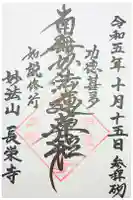 令和五年十月十五日参拜
功徳甚多
南無妙法蓮華経
初祈修行
妙法山長栄寺